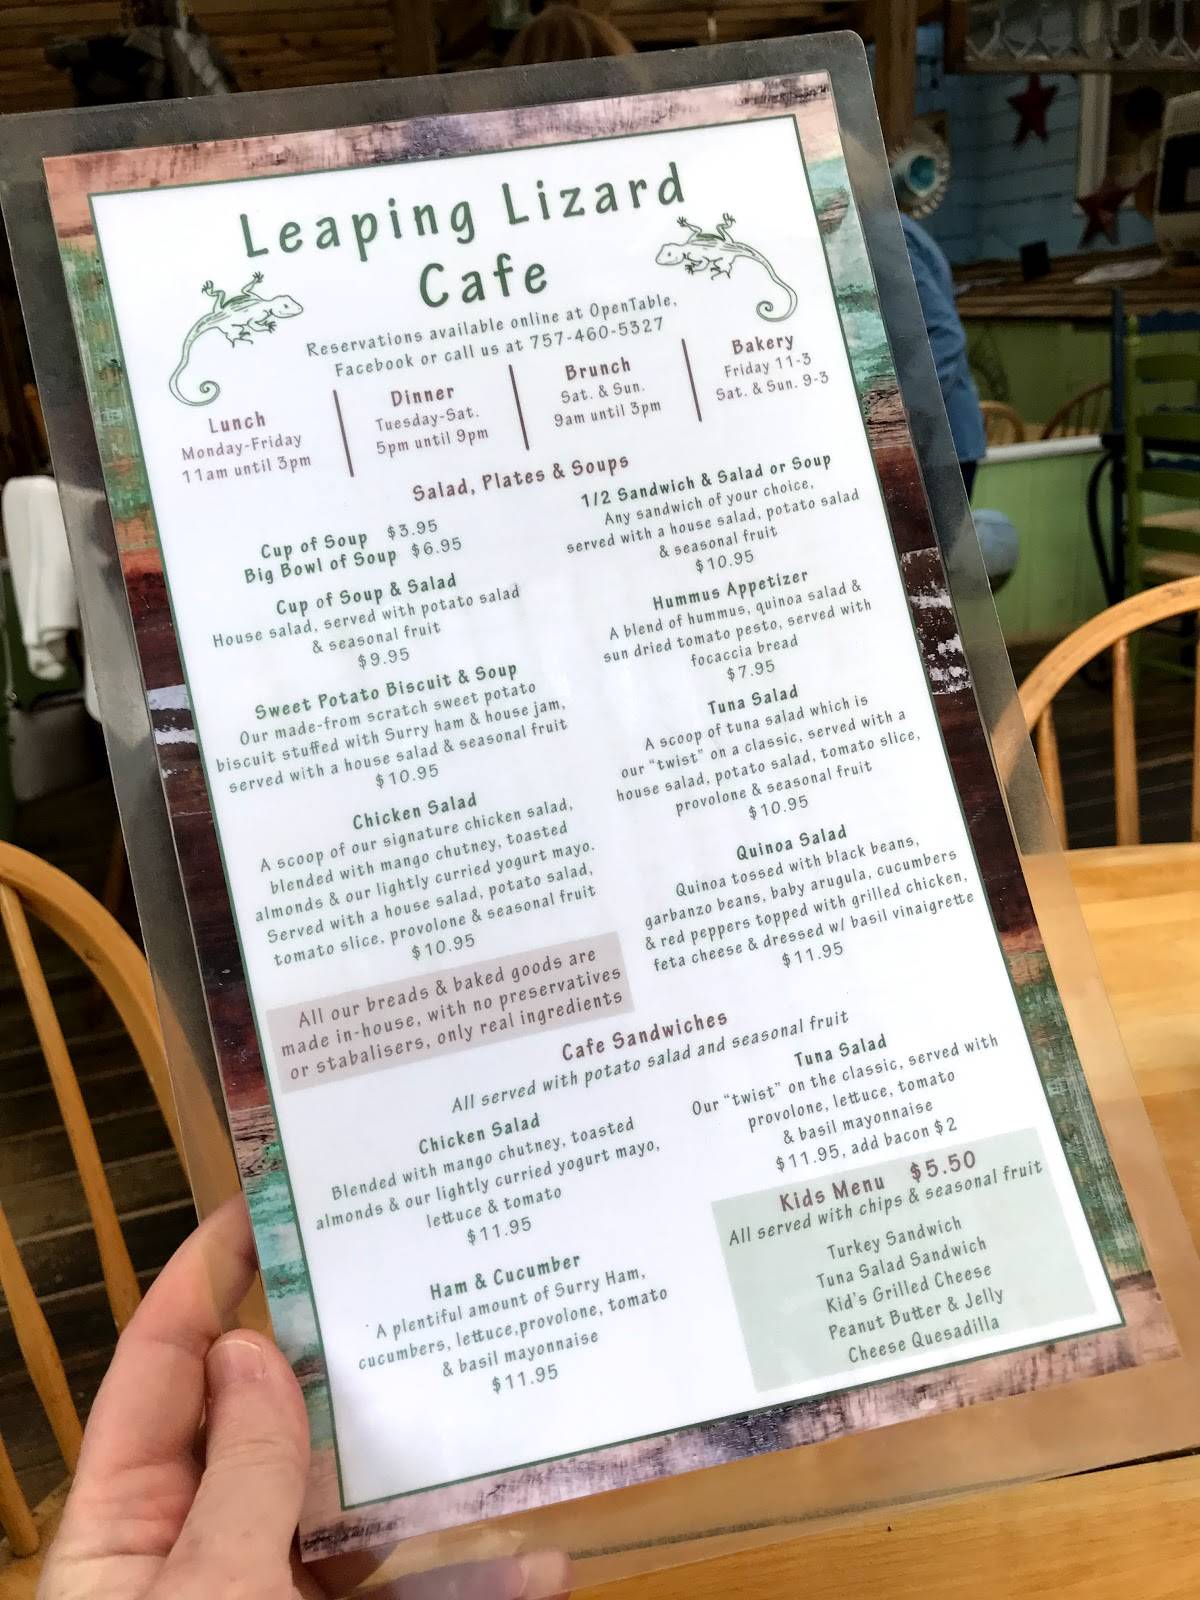 Leaping Lizard
Cafe
Reservations available online at OpenTable,
Facebook or call us at 757-460-5327
Lunch
Monday-Friday
11am until 3pm
Dinner
Tuesday-Sat.
5pm until 9pm
Brunch
Sat. & Sun.
9am until 3pm
Bakery
Friday 11-3
Sat. & Sun. 9-3
Salad, Plates & Soups
Cup of Soup $3.95
Big Bowl of Soup $6.95
Cup of Soup & Salad
House salad, served with potato salad
& seasonal fruit
$9.95
Sweet Potato Biscuit & Soup
Our made-from scratch sweet potato
biscuit stuffed with Surry ham & house jam,
served with a house salad & seasonal fruit
$10.95
Chicken Salad
A scoop of our signature chicken salad,
blended with mango chutney, toasted
almonds & our lightly curried yogurt mayo.
Served with a house salad, potato salad,
tomato slice, provolone & seasonal fruit
$10.95
1/2 Sandwich & Salad or Soup
Any sandwich of your choice,
served with a house salad, potato salad
& seasonal fruit
$10.95
Hummus Appetizer
A blend of hummus, quinoa salad &
sun dried tomato pesto, served with
focaccia bread
$7.95
Tuna Salad
A scoop of tuna salad which is
our "twist" on a classic, served with a
house salad, potato salad, tomato slice,
provolone & seasonal fruit
$10.95
Quinoa Salad
Quinoa tossed with black beans,
garbanzo beans, baby arugula, cucumbers
& red peppers topped with grilled chicken,
feta cheese & dressed w/ basil vinaigrette
$11.95
All our breads & baked goods are
made in-house, with no preservatives
or stabalisers, only real ingredients
Cafe Sandwiches
All served with potato salad and seasonal fruit
Chicken Salad
Blended with mango chutney, toasted
almonds & our lightly curried yogurt mayo,
lettuce & tomato
$11.95
Ham & Cucumber
A plentiful amount of Surry Ham,
cucumbers, lettuce,provolone, tomato
& basil mayonnaise
$11.95
Tuna Salad
Our "twist" on the classic, served with
provolone, lettuce, tomato
& basil mayonnaise
$11.95, add bacon $2
Kids Menu $5.50
All served with chips & seasonal fruit
Turkey Sandwich
Tuna Salad Sandwich
Kid's Grilled Cheese
Peanut Butter & Jelly
Cheese Quesadilla